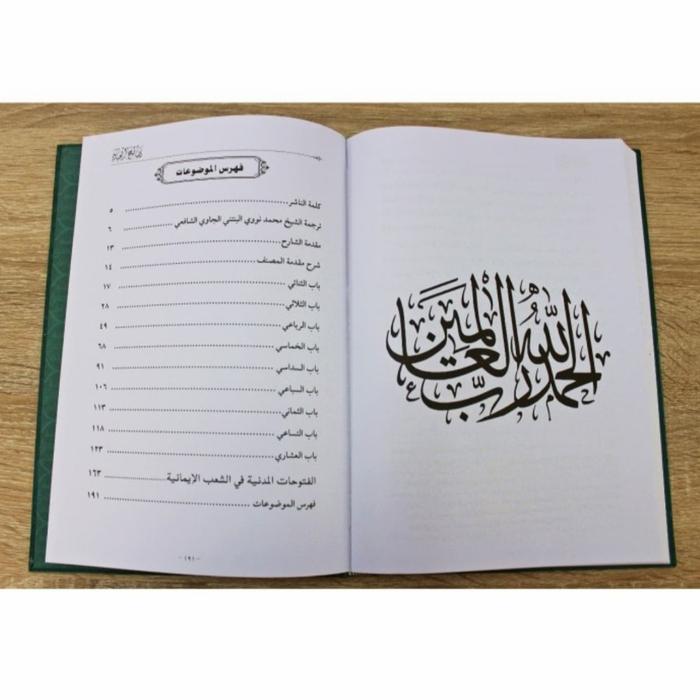 فهرس الموضوعات
كلمة الناشر ........ ٥
ترجمة الشيخ محمد نووي البنتني الجاوي الشافعي ........ ٦
مقدمة الشارح ........ ١٣
شرح مقدمة المصنف ........ ١٤
باب الثنائي ........ ١٧
باب الثلاثي ........ ٢٨
باب الرباعي ........ ٤٩
باب الخماسي ........ ٦٨
باب السداسي ........ ٩١
باب السباعي ........ ١٠٦
باب الثماني ........ ١١٣
باب التساعي ........ ١١٨
باب العشاري ........ ١٢٣
الفتوحات المدنية في الشعب الإيمانية ........ ١٦٣
فهرس الموضوعات ........ ١٩١
- ١٩١ -
الحمد لله رب العالمين